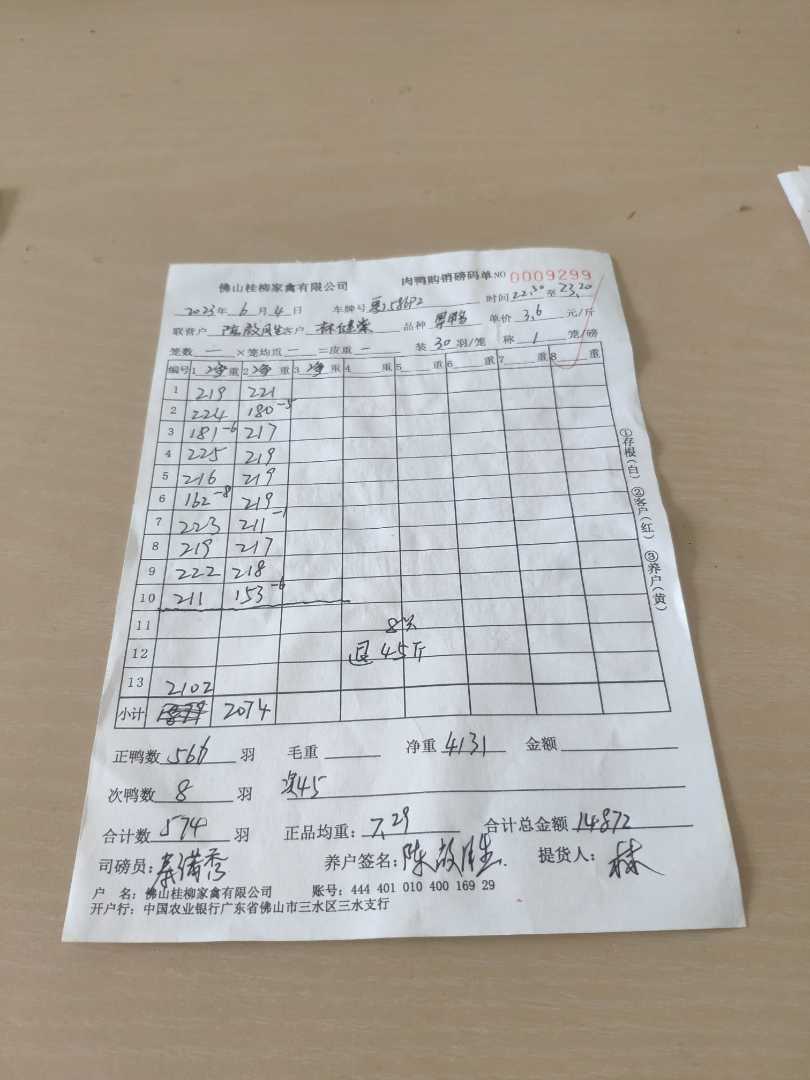 佛山桂柳家禽有限公司 肉鸭购销磅码单 NO 0009299
2023年 6月 4日 车牌号 时间 22.30 至 23.20
联营户 客户 林健 品种 单价 3.6 元/斤
笼数 一 ×笼均重 一 =皮重 一 装 30 羽/笼 称 1 笼/磅
编号 1 净 重 2 净 重 3 净 重 4 重 5 重 6 重 7 重 8 重
1 219 221
2 224 180-5
3 181-6 217
4 225 219
5 216 219
6 162-8 219
7 223 211-1
8 219 217
9 222 218
10 211 153-6
11 8只
12 退 45斤
13 2102
小计 2074
正鸭数 566 羽 毛重 净重 4131 金额
次鸭数 8 羽 次45
合计数 574 羽 正品均重: 7.29 合计总金额 14872
司磅员: 秀 养户签名: 陈 提货人: 林
户 名: 佛山桂柳家禽有限公司 账号: 444 401 010 400 169 29
开户行: 中国农业银行广东省佛山市三水区三水支行
①存根(白) ②客户(红) ③养户(黄)